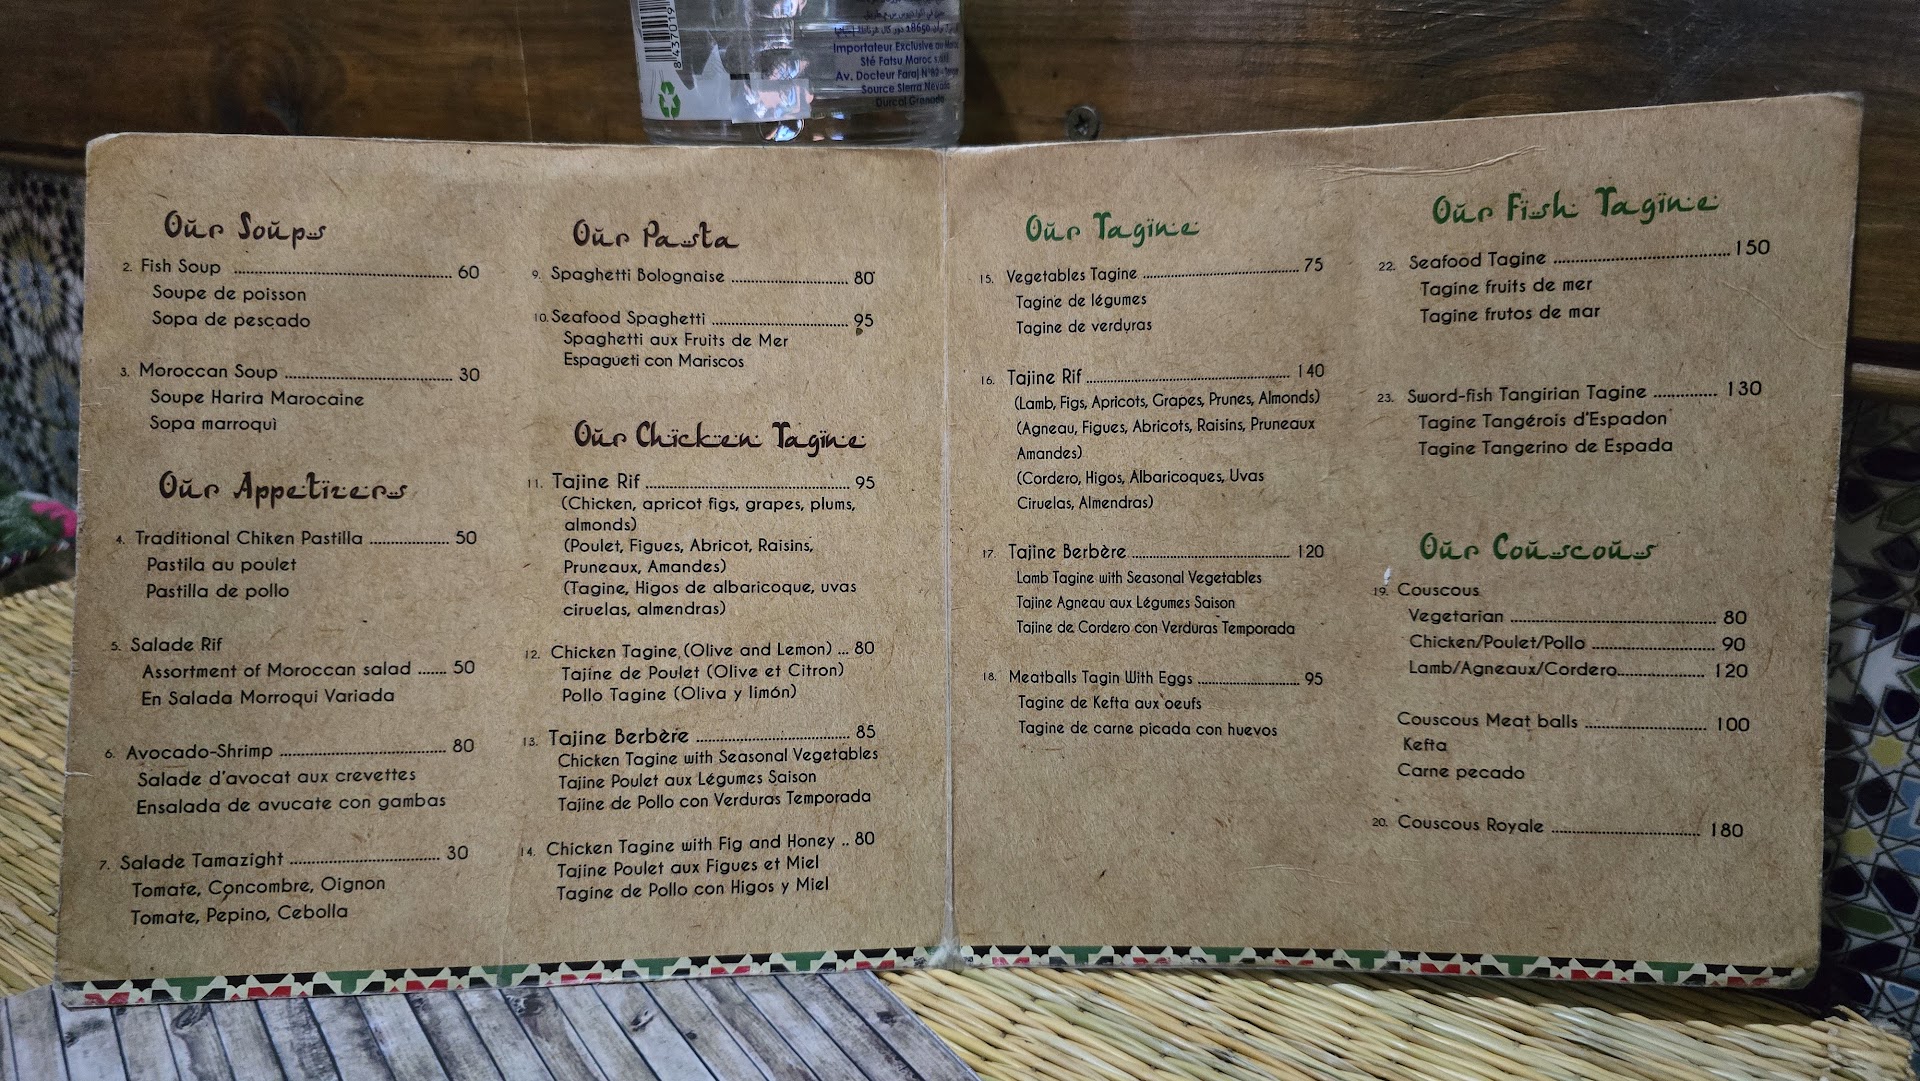 8 437019
18650
Importateur Exclusive au Maroc
Sté Fatsu Maroc
Av. Docteur Faraj N°82 -
Source Sierra Nevada
Durcal Granada
Our Soups
2. Fish Soup ........ 60
Soupe de poisson
Sopa de pescado
3. Moroccan Soup ........ 30
Soupe Harira Marocaine
Sopa marroquì
Our Appetizers
4. Traditional Chiken Pastilla ........ 50
Pastila au poulet
Pastilla de pollo
5. Salade Rif
Assortment of Moroccan salad ...... 50
En Salada Morroqui Variada
6. Avocado-Shrimp ........ 80
Salade d'avocat aux crevettes
Ensalada de avucate con gambas
7. Salade Tamazight ........ 30
Tomate, Concombre, Oignon
Tomate, Pepino, Cebolla
Our Pasta
9. Spaghetti Bolognaise ........ 80
10. Seafood Spaghetti ........ 95
Spaghetti aux Fruits de Mer
Espagueti con Mariscos
Our Chicken Tagine
11. Tajine Rif ........ 95
(Chicken, apricot figs, grapes, plums,
almonds)
(Poulet, Figues, Abricot, Raisins,
Pruneaux, Amandes)
(Tagine, Higos de albaricoque, uvas
ciruelas, almendras)
12. Chicken Tagine (Olive and Lemon) ... 80
Tajine de Poulet (Olive et Citron)
Pollo Tagine (Oliva y limón)
13. Tajine Berbère ........ 85
Chicken Tagine with Seasonal Vegetables
Tajine Poulet aux Légumes Saison
Tajine de Pollo con Verduras Temporada
14. Chicken Tagine with Fig and Honey .. 80
Tajine Poulet aux Figues et Miel
Tagine de Pollo con Higos y Miel
Our Tagine
15. Vegetables Tagine ........ 75
Tagine de légumes
Tagine de verduras
16. Tajine Rif ........ 140
(Lamb, Figs, Apricots, Grapes, Prunes, Almonds)
(Agneau, Figues, Abricots, Raisins, Pruneaux
Amandes)
(Cordero, Higos, Albaricoques, Uvas
Ciruelas, Almendras)
17. Tajine Berbère ........ 120
Lamb Tagine with Seasonal Vegetables
Tajine Agneau aux Légumes Saison
Tajine de Cordero con Verduras Temporada
18. Meatballs Tagin With Eggs ........ 95
Tagine de Kefta aux oeufs
Tagine de carne picada con huevos
Our Fish Tagine
22. Seafood Tagine ........ 150
Tagine fruits de mer
Tagine frutos de mar
23. Sword-fish Tangirian Tagine ........ 130
Tagine Tangérois d'Espadon
Tagine Tangerino de Espada
Our Couscous
19. Couscous
Vegetarian ........ 80
Chicken/Poulet/Pollo ........ 90
Lamb/Agneaux/Cordero ........ 120
Couscous Meat balls ........ 100
Kefta
Carne pecado
20. Couscous Royale ........ 180